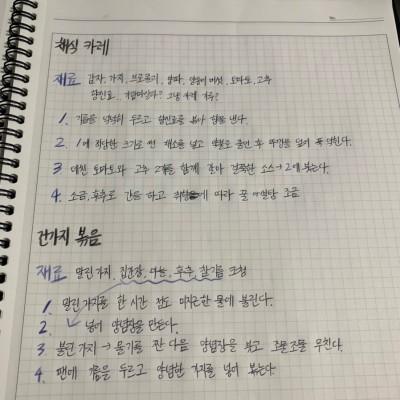 채식 카레
재료 감자, 가지, 브로콜리, 양파, 양송이 버섯, 토마토, 고추
향신료.. 그냥 카레 가루?
1. 기름을 넉넉히 두르고 향신료를 볶아 향을 낸다.
2. 1에 적당한 크기로 썬 채소를 넣고 약불로 줄인 후 뚜껑을 덮어 푹 익힌다.
3 데친 토마토와 고추 2개를 함께 갈아 걸쭉한 소스 → 2에 붓는다.
4. 소금, 후추로 간을 하고 취향에 따라 꿀 아몬드 조금
건가지 볶음
재료 말린 가지, 집간장, 마늘, 후추, 참기름 크징
1. 말린 가지를 한 시간 정도 미지근한 물에 불린다.
2. 넣어 양념장을 만든다.
3 불린 가지 → 물기를 짠 다음 양념장을 붓고 조물조물 무친다.
4. 팬에 기름을 두르고 양념한 가지를 넣어 볶는다.